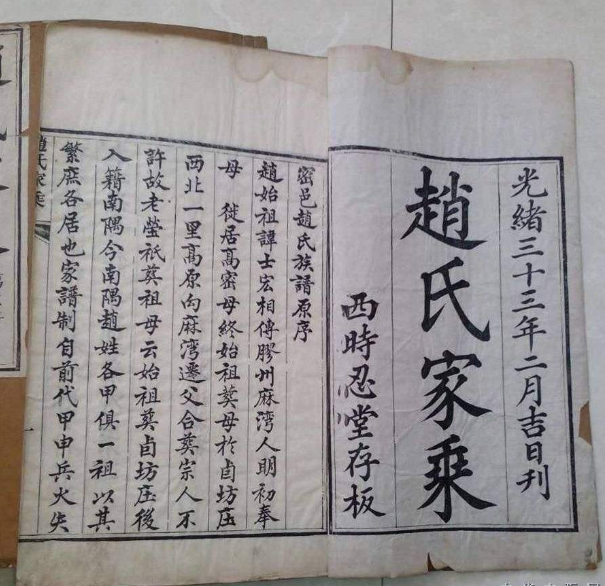 光緒三十三年二月吉日刊
趙氏家乘
西時忍堂存板
密邑趙氏族譜原序
趙始祖諱士宏相傳膠州麻灣人明初奉
母 徙居高密母終始祖葬母於卣坊庄
西北一里高原向麻灣遷父合葬宗人不
許故老塋祇葬祖母云始祖葬卣坊庄後
入籍南隅今南隅趙姓各甲俱一祖以其
繁庶各居也家譜制自前代甲申兵火失
趙氏家乘
一